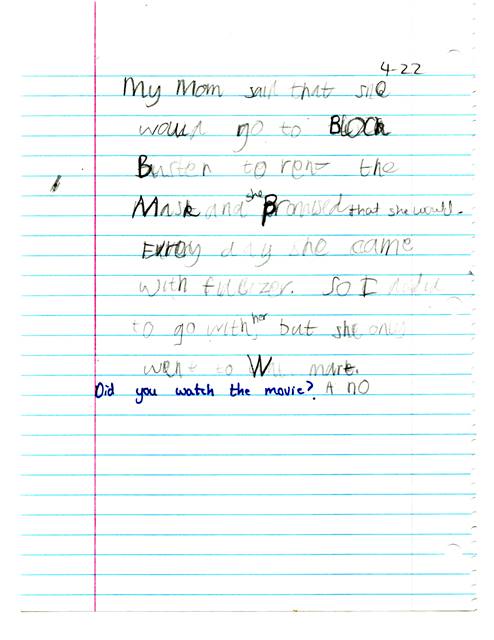 4-22
My Mom said that she
would go to Block
Buster to rent the
Mask and she Promised that she would.
Every day she came
with . So I
to go with her but she only
went to Wal mart.
Did you watch the movie? A no